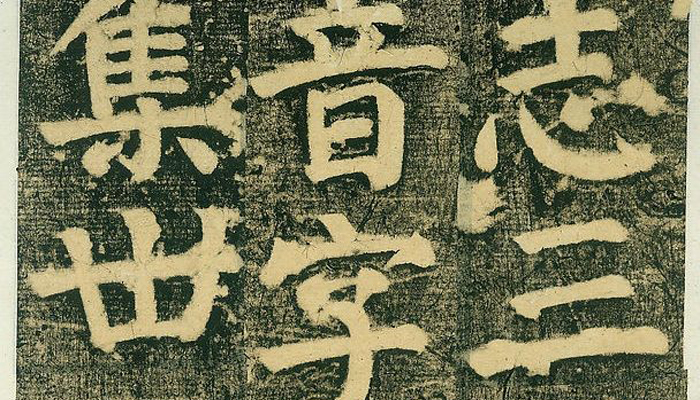 志三
音字
集丗